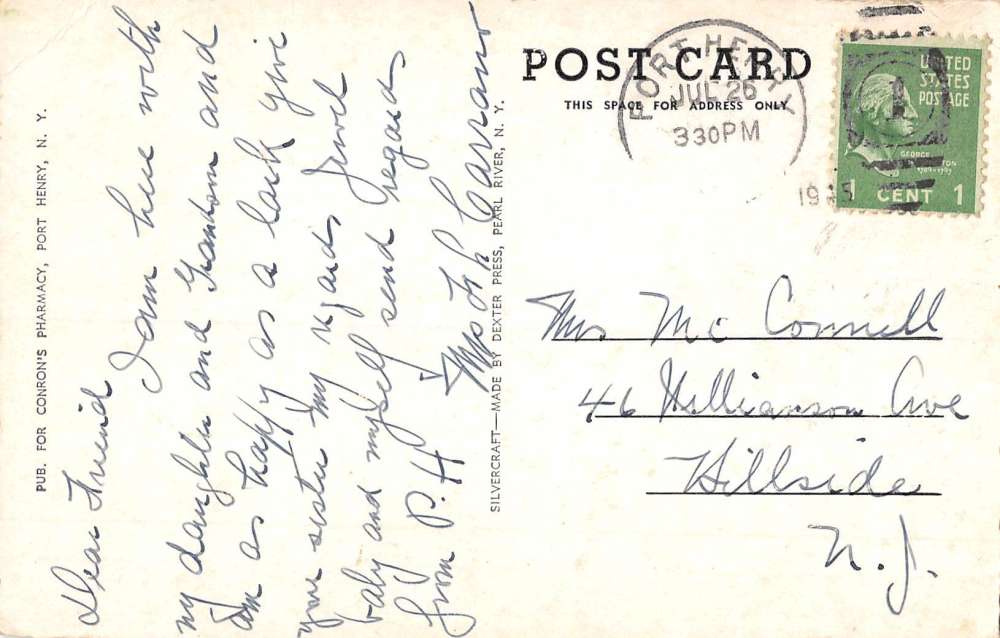 PUB. FOR CONRON'S PHARMACY, PORT HENRY, N. Y.
Dear Friend
I am here with
my daughter and Grandson and
am as happy as a lark give
your sister my regards Jewel
baby and myself send regards
from P.H.
Mrs Carrano
SILVERCRAFT—MADE BY DEXTER PRESS, PEARL RIVER, N. Y.
POST CARD
THIS SPACE FOR ADDRESS ONLY
PORT HENRY
JUL 26
330PM
UNITED
STATES
POSTAGE
1
GEORGE
1789-1797
1 CENT 1
Mrs Mc Connell
46 Williamson Ave
Hillside
N.J.